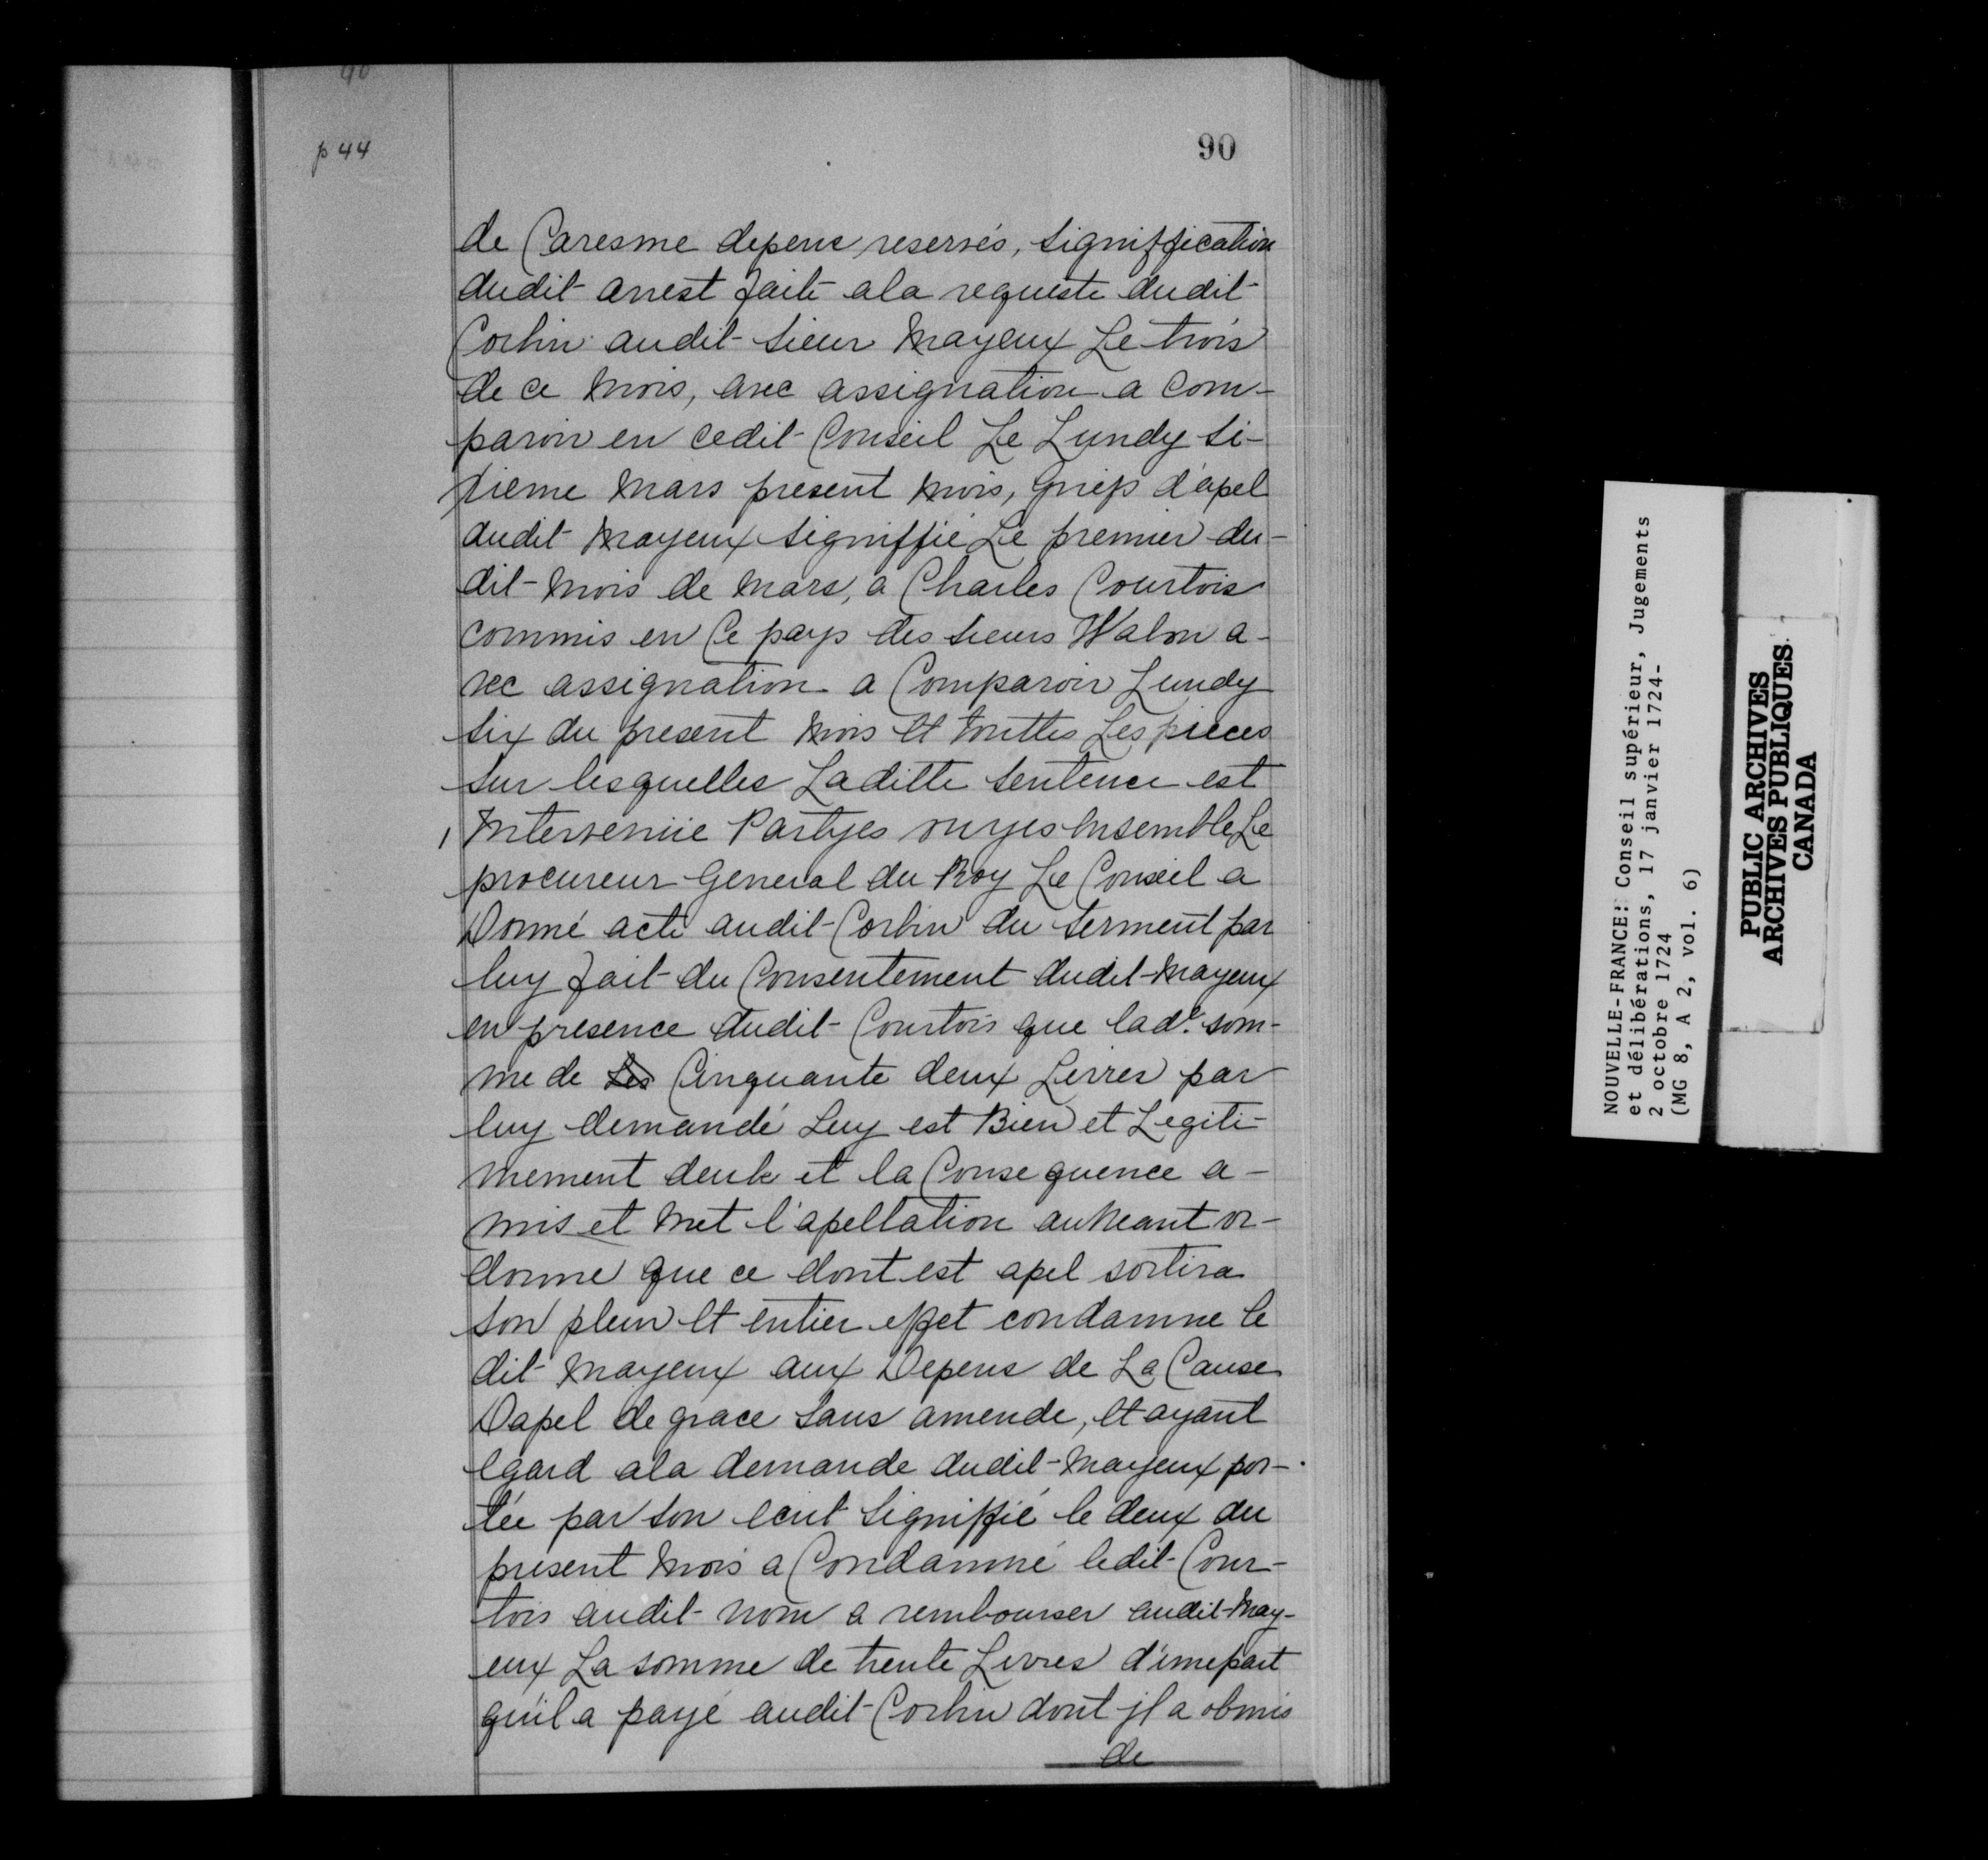 90
p 44
90
de Caresme depens reservés, signiffication
dudit arrest faite ala requeste dudit
Corbin audit sieur Mayeux Le trois
de ce mois, avec assignation a com-
paroir en cedit Conseil Le Lundy si-
xieme Mars present mois, Griefs d'apel
dudit Mayeux signiffié Le premier du-
dit mois de Mars, a Charles Courtois
commis en Ce pays des sieurs Walon a-
vec assignation a Comparoir Lundy
six du present mois Et touttes Les pieces
sur lesquelles Laditte sentence est
Intervenüe Partyes ouyes Ensemble Le
procureur General du Roy Le Conseil a
Donné acte audit Corbin du serment par
luy fait du Consentement dudit Mayeux
en presence dudit Courtois que lade. som-
me de Les Cinquante deux Livres par
luy demandé Luy est Bien et Legiti-
mement deub et la Consequence a-
mis et Met l'apellation au Neant or-
donne que ce dont est apel sortira
son plein Et entier effet condamne le
dit Mayeux aux Depens de La Cause
Dapel de grace sans amende, Et ayant
Egard ala demande dudit Mayeux por-
tée par son Ecrit signiffié le deux du
present mois a Condamné ledit Cour-
tois audit nom a rembourser audit May-
eux La somme de trente Livres d'une part
qu'il a payé audit Corbin dont jl a obmis
de
NOUVELLE-FRANCE: Conseil supérieur, Jugements
et délibérations, 17 janvier 1724-
2 octobre 1724
(MG 8, A 2, vol. 6)
PUBLIC ARCHIVES
ARCHIVES PUBLIQUES
CANADA